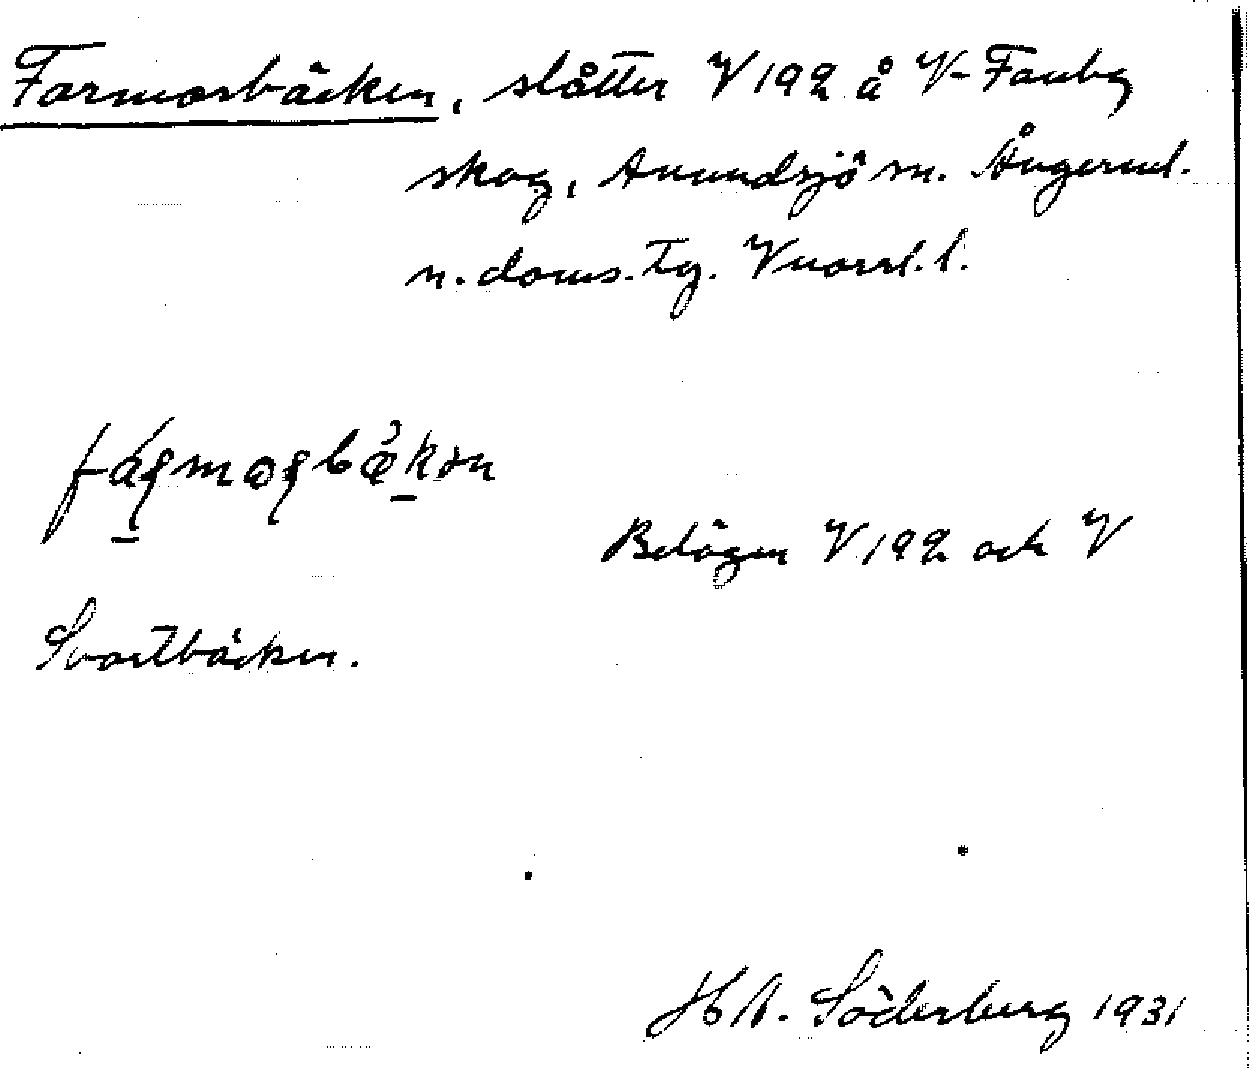 Farmorbäcken, slåtter V 192 å V-Fanby
skog, Anundsjö sn. Ångerml.
n. doms. tg. Vnorrl. l.
Belägen V 192 och V
Svartbäcken.
H A. Söderberg 1931